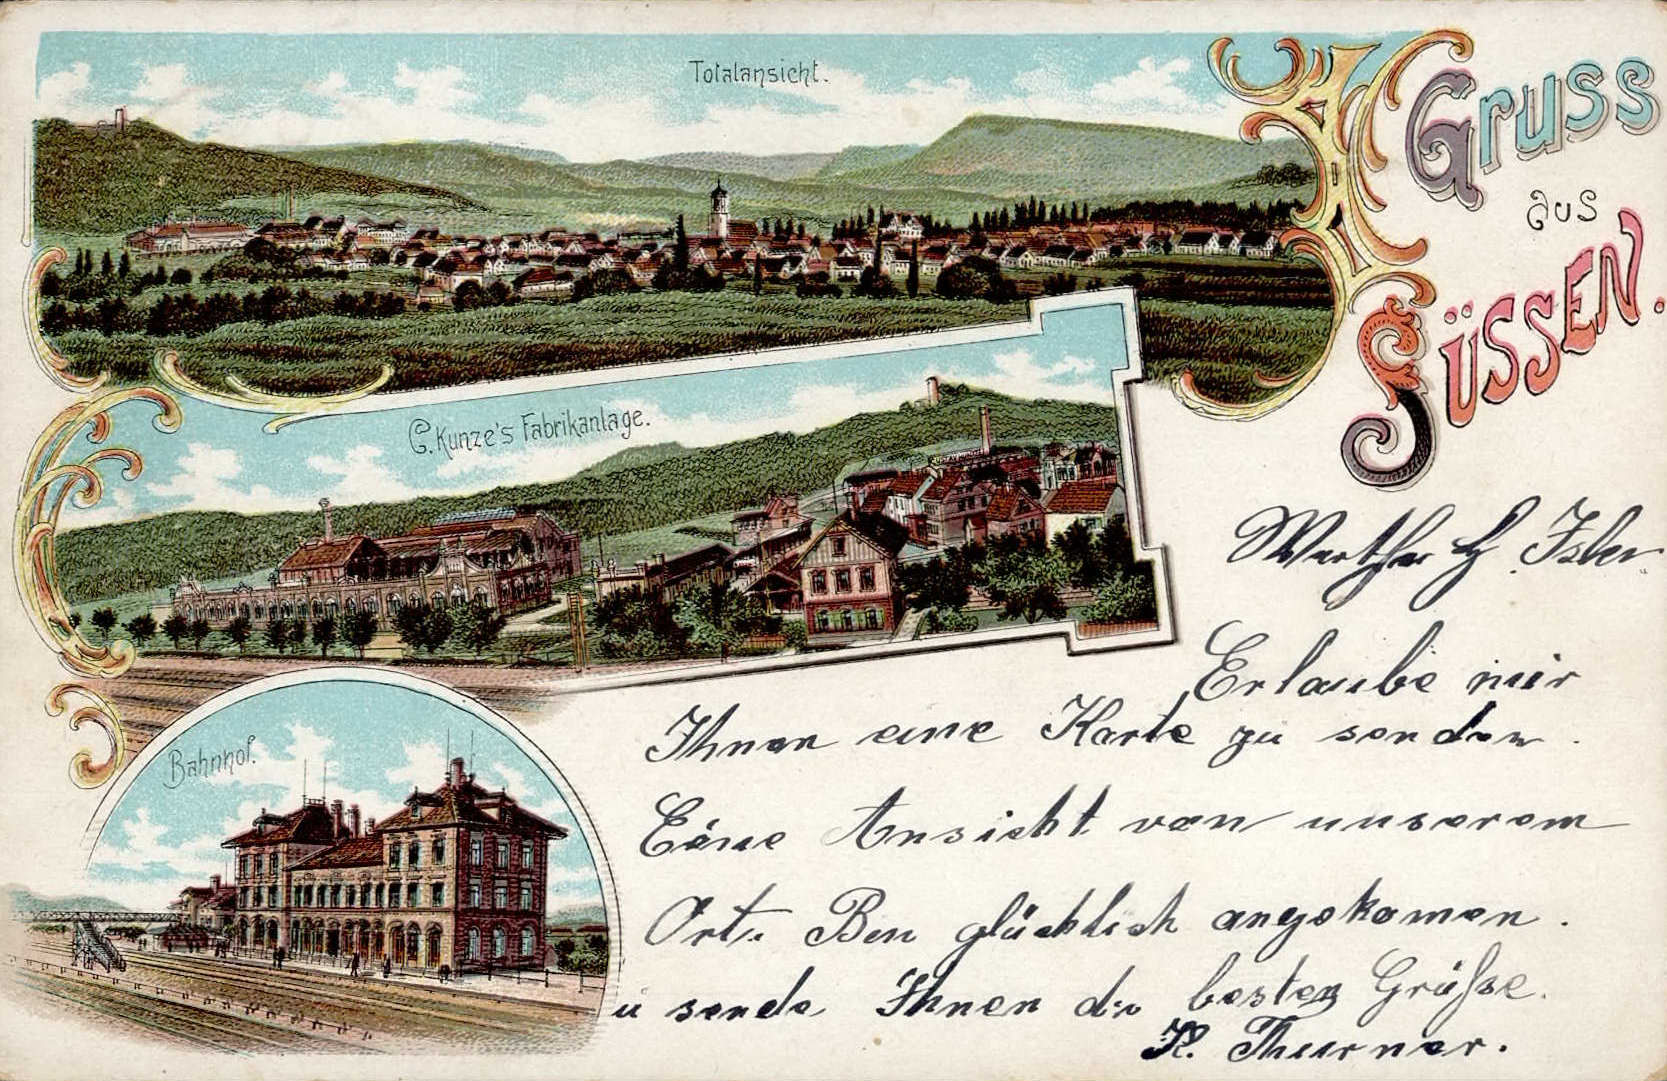 Totalansicht.
Gruss
aus
Süssen.
G. Kunze's Fabrikanlage.
Bahnhof.
Werther H. Isler
Erlaube mir
Ihnen eine Karte zu senden.
Eine Ansicht von unserem
Ort. Ben glücklich angekomen.
u sende Ihnen die besten Grüße.
K. Thurner.